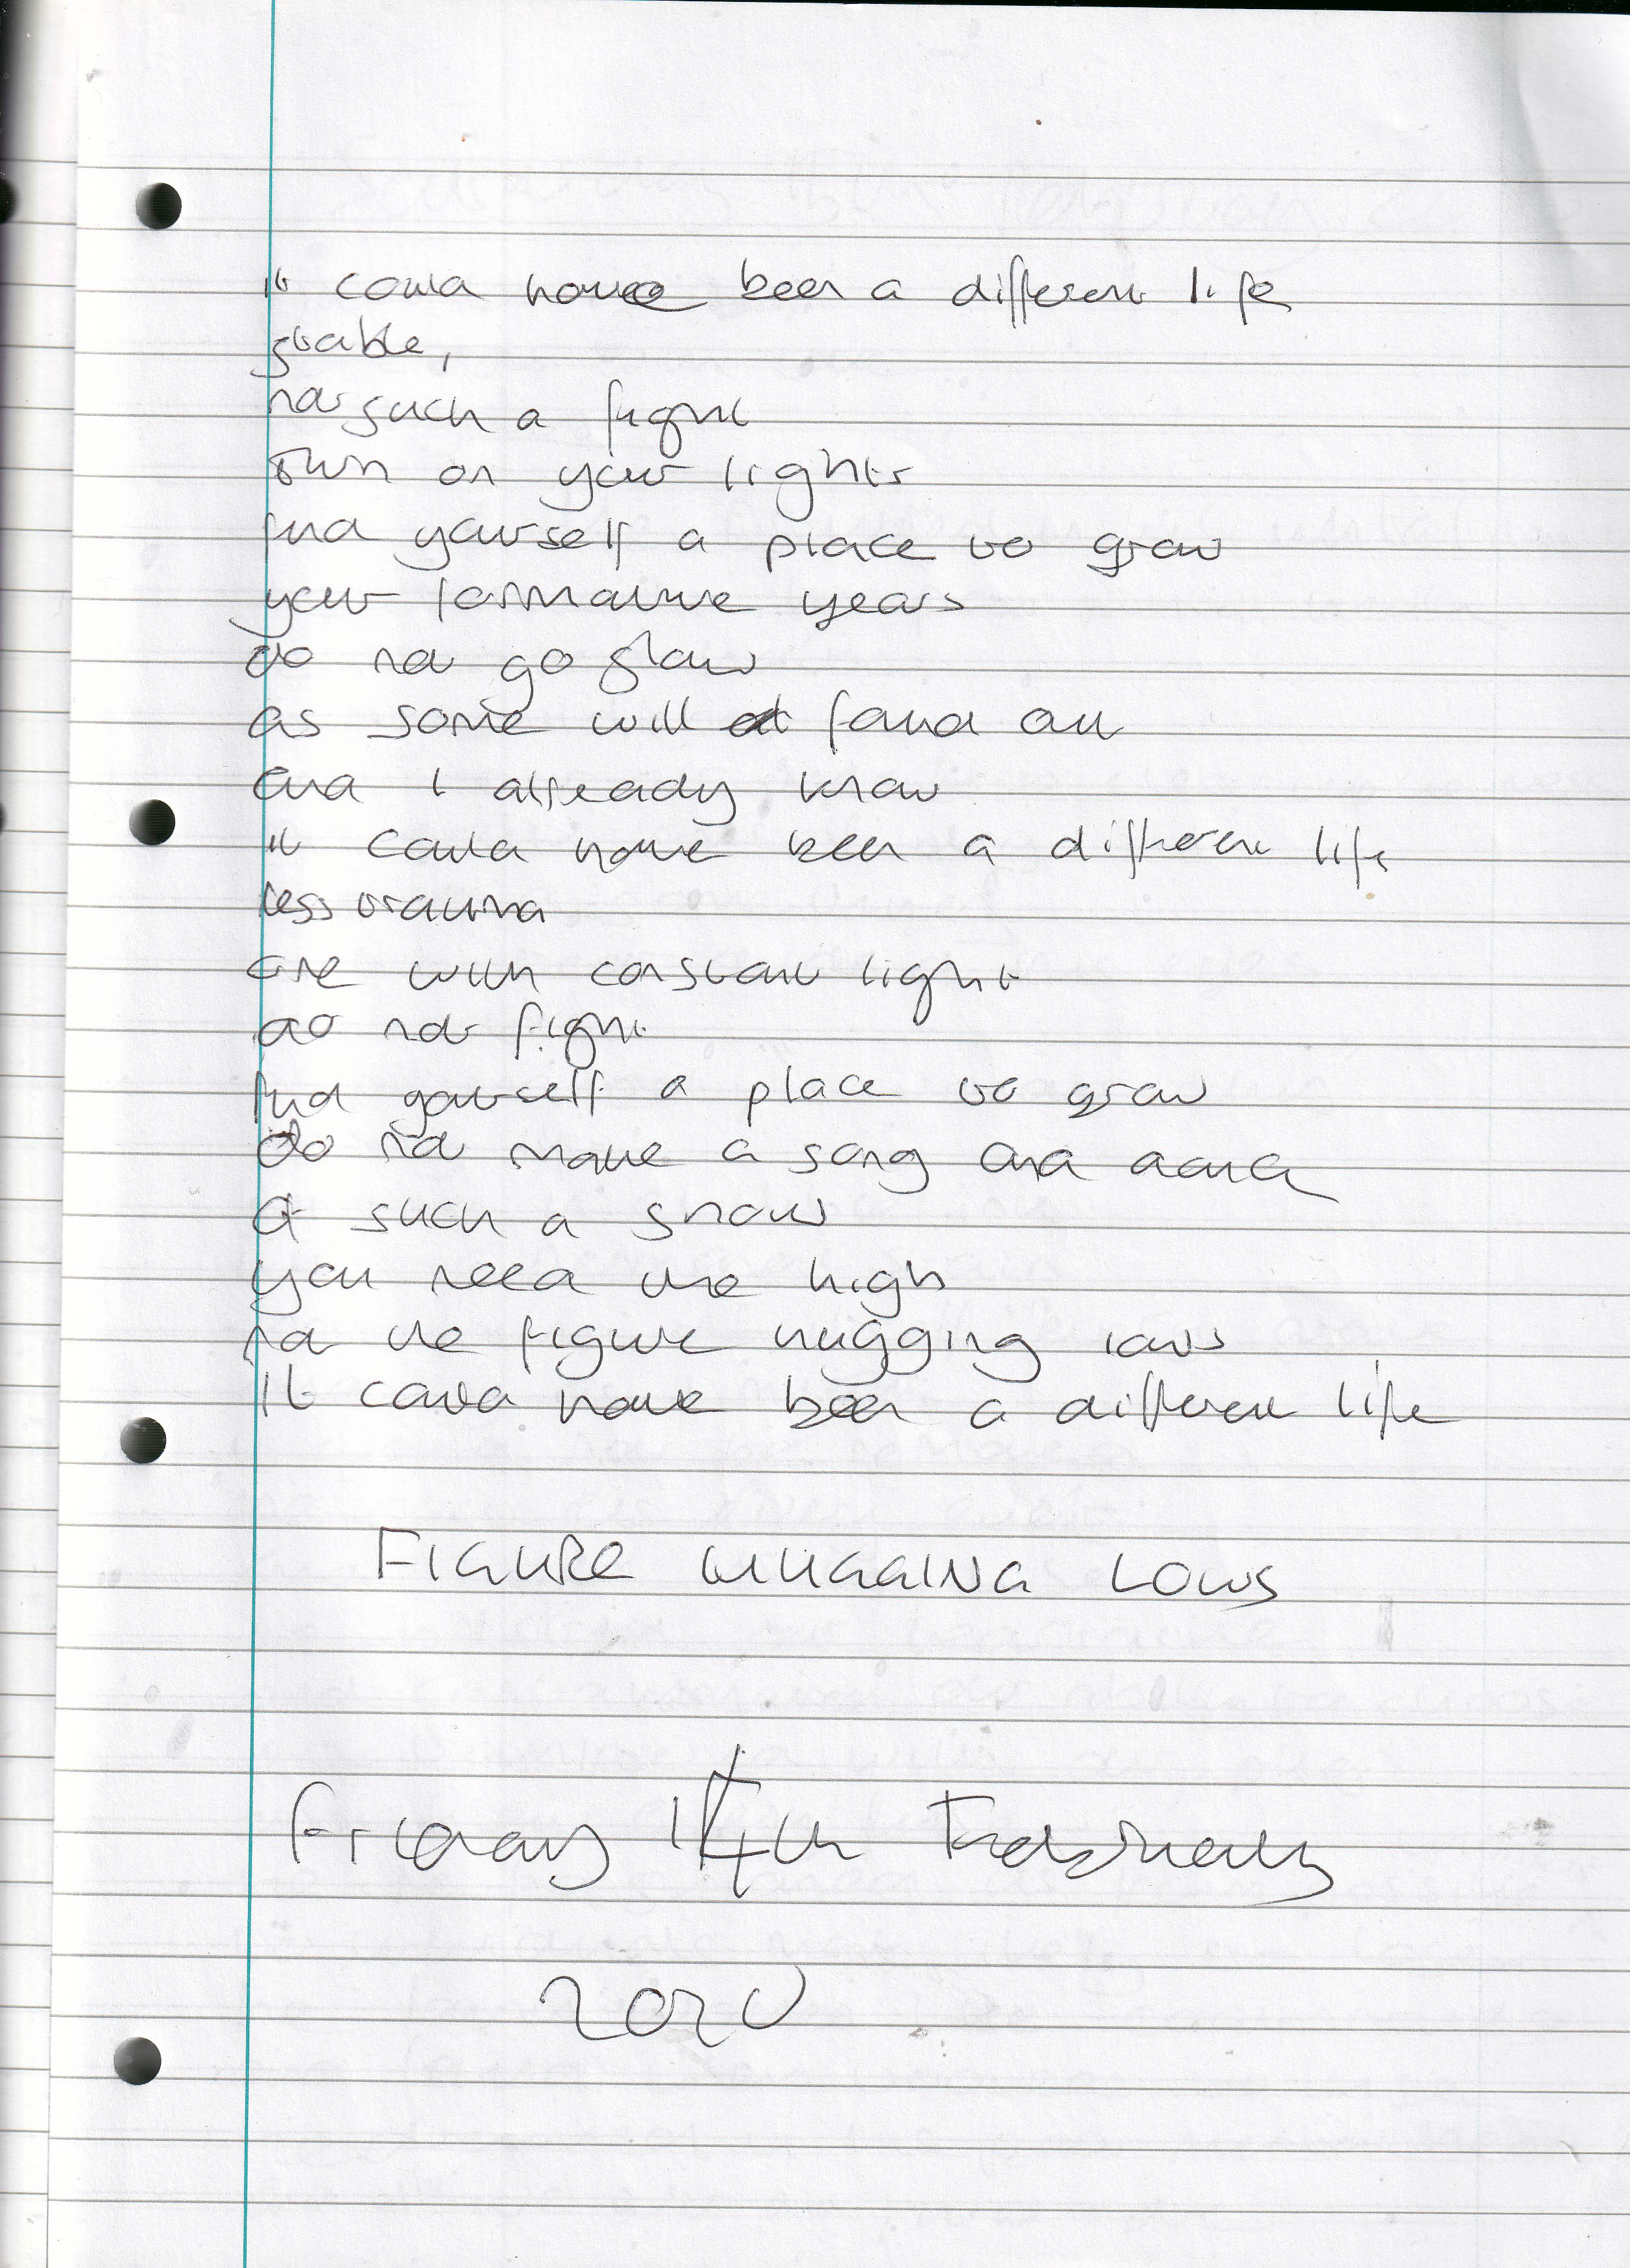 it could have been a different life
stable,
not such a fight
turn on your lights
find yourself a place to grow
your formative years
do not go slow
as some will find out
and I already know
it could have been a different life
less trauma
one with constant light
do not fight
find yourself a place to grow
do not make a song and dance
of such a show
you need the high
not the figure hugging lows
it could have been a different life
FIGURE HUGGING LOWS
Friday 14th February
2020